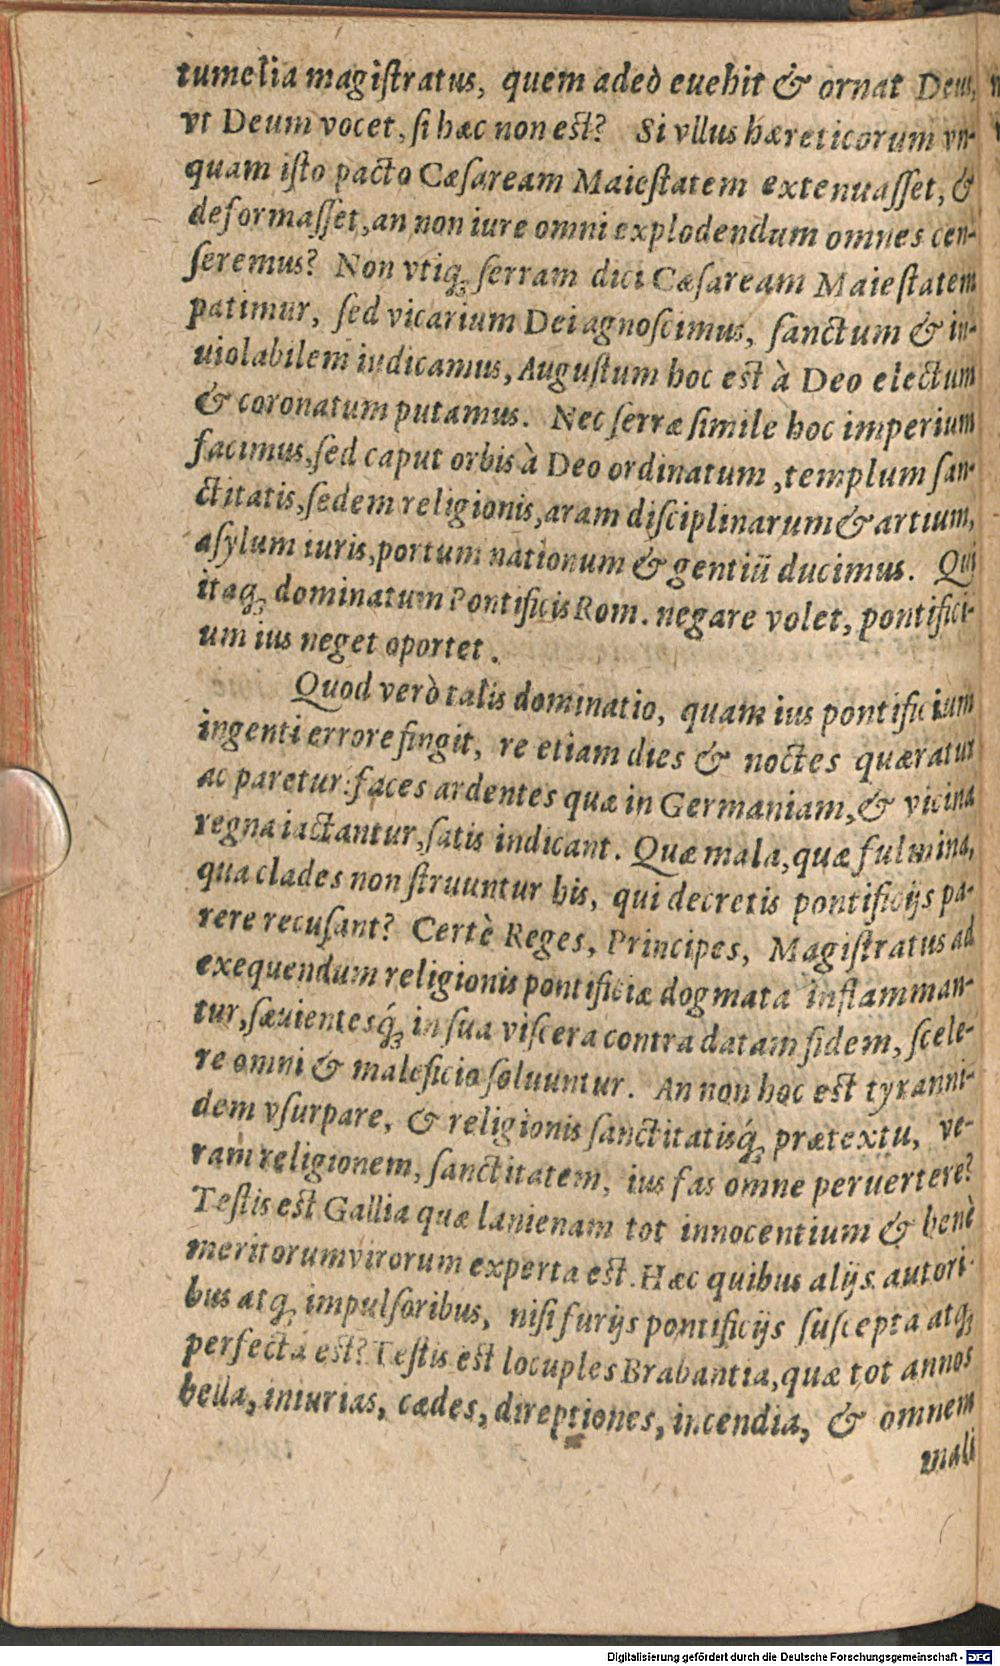 tumelia magiſtratus, quem adeò euehit & ornat Deus,
vt Deum vocet, ſi hæc non eſt? Si vllus hæreticorum vn-
quam iſto pacto Cæſaream Maieſtatem extenuaſſet, &
deformaſſet, an non iure omni explodendum omnes cen-
ſeremus? Non vtiqꝫ ſerram dici Cæſaream Maieſtatem
patimur, ſed vicarium Dei agnoſcimus, ſanctum & in-
uiolabilem iudicamus, Auguſtum hoc eſt à Deo electum
& coronatum putamus. Nec ſerræ ſimile hoc imperium
facimus, ſed caput orbis à Deo ordinatum, templum ſan-
ctitatis, ſedem religionis, aram diſciplinarum & artium,
aſylum iuris, portum nationum & gentiũ ducimus. Qui
itaqꝫ dominatum Pontificis Rom. negare volet, pontifici-
um ius neget oportet.
Quod verò talis dominatio, quam ius pontificium
ingenti errore fingit, re etiam dies & noctes quæratur
ac paretur: faces ardentes quæ in Germaniam, & vicina
regna iactantur, ſatis indicant. Quæ mala, quæ fulmina,
qua clades non ſtruuntur his, qui decretis pontificijs pa-
rere recuſant? Certè Reges, Principes, Magiſtratus ad
exequendum religionis pontificiæ dogmata inflamman-
tur, ſæuientesqꝫ́ in ſua viſcera contra datam fidem, ſcele-
re omni & maleficio ſoluuntur. An non hoc eſt tyranni-
dem vſurpare, & religionis ſanctitatisqꝫ́ prætextu, ve-
ram religionem, ſanctitatem, ius fas omne peruertere?
Teſtis eſt Gallia quæ lanienam tot innocentium & benè
meritorum virorum experta eſt. Hæc quibus alijs autori-
bus atqꝫ impulſoribus, niſi furijs pontificijs ſuſcepta atqꝫ
perfecta eſt? Teſtis eſt locuples Brabantia, quæ tot annos
bella, iniurias, cædes, direptiones, incendia, & omnem
mali
Digitalisierung gefördert durch die Deutsche Forschungsgemeinschaft - DFG